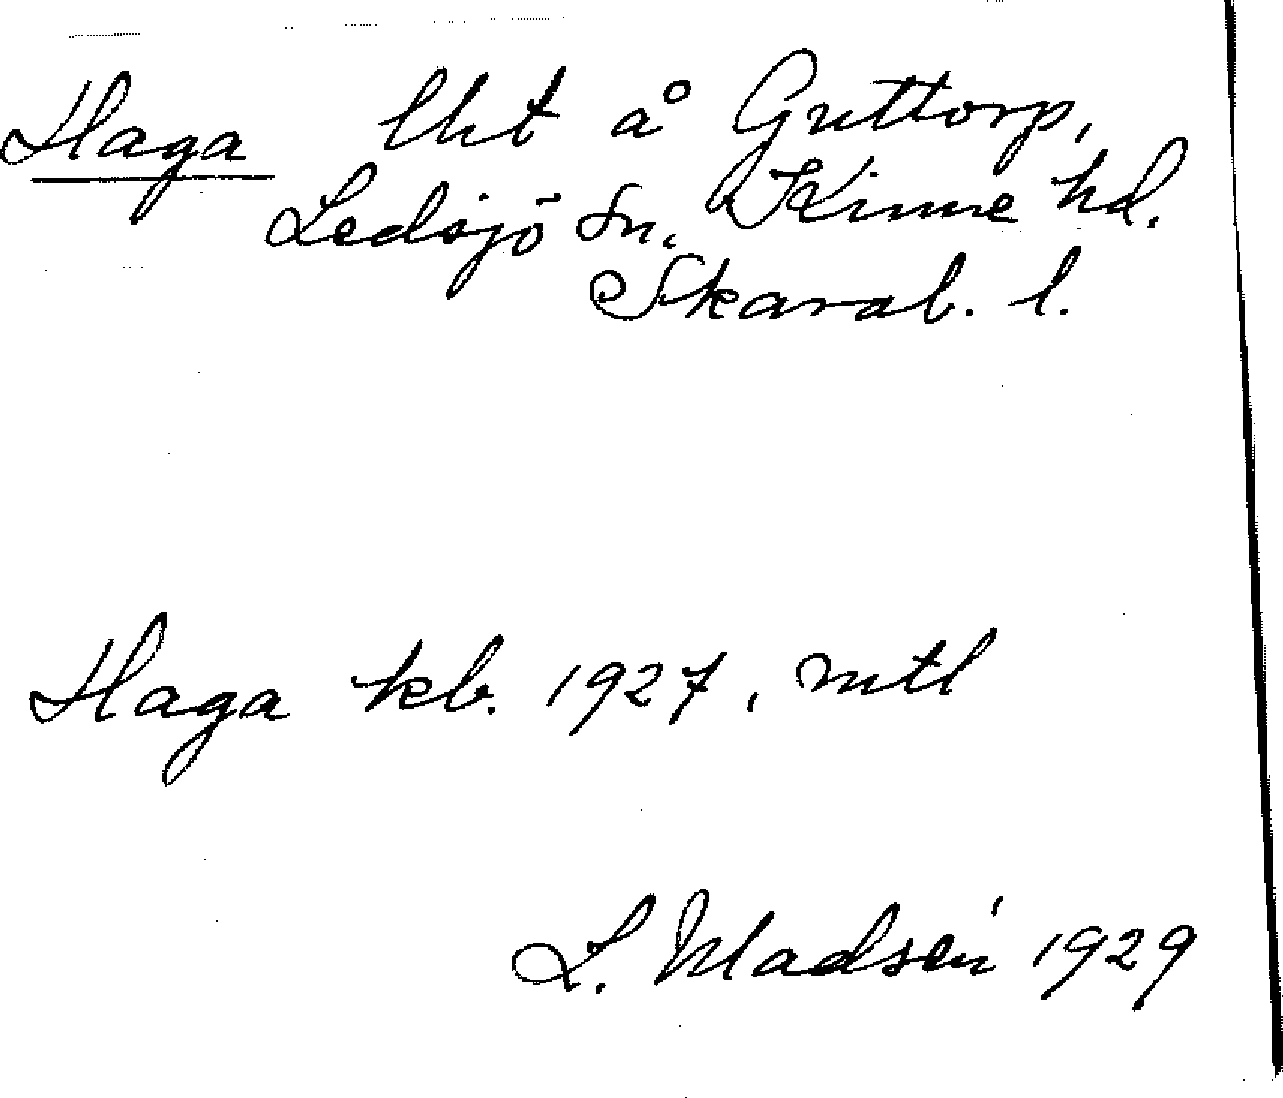 Haga lht å Guttorp,
Ledsjö sn. Kinne hd.
Skarab. l.
Haga kb. 1927, mtl
L. Madsén 1929